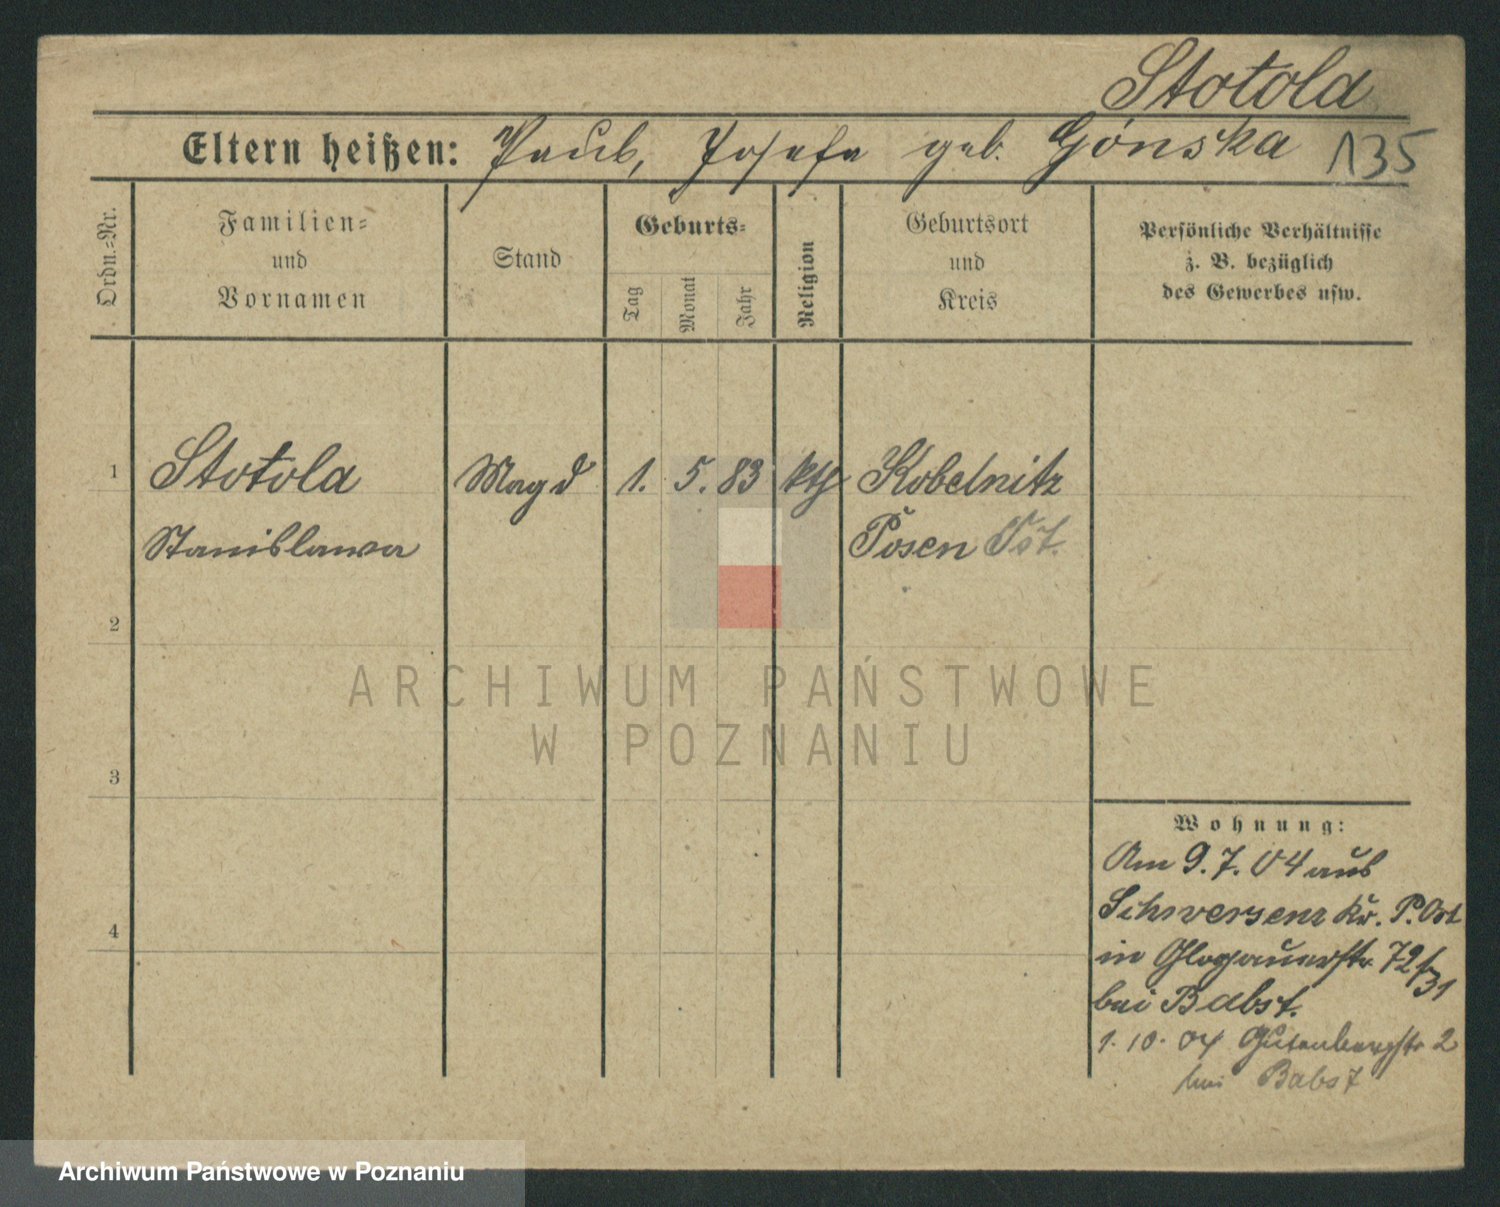 Stotola
Eltern heißen: Paul, Josefa geb. Gónska 135
Ordn.-Nr.
Familien-
und
Vornamen
Stand
Geburts-
Tag
Monat
Jahr
Religion
Geburtsort
und
Kreis
Persönliche Verhältnisse
z. B. bezüglich
des Gewerbes usw.
1 Stotola Magd 1. 5. 83 kth Kobelnitz
Stanislawa Posen Ost.
2
3
4
ARCHIWUM PAŃSTWOWE
W POZNANIU
Wohnung:
Am 9.7.04 aus
Schwersenz Kr. P. Ost
in Glogauerstr. 72/31
bei Babst.
1. 10. 04 Gutenbergstr 2
bei Babst
Archiwum Państwowe w Poznaniu